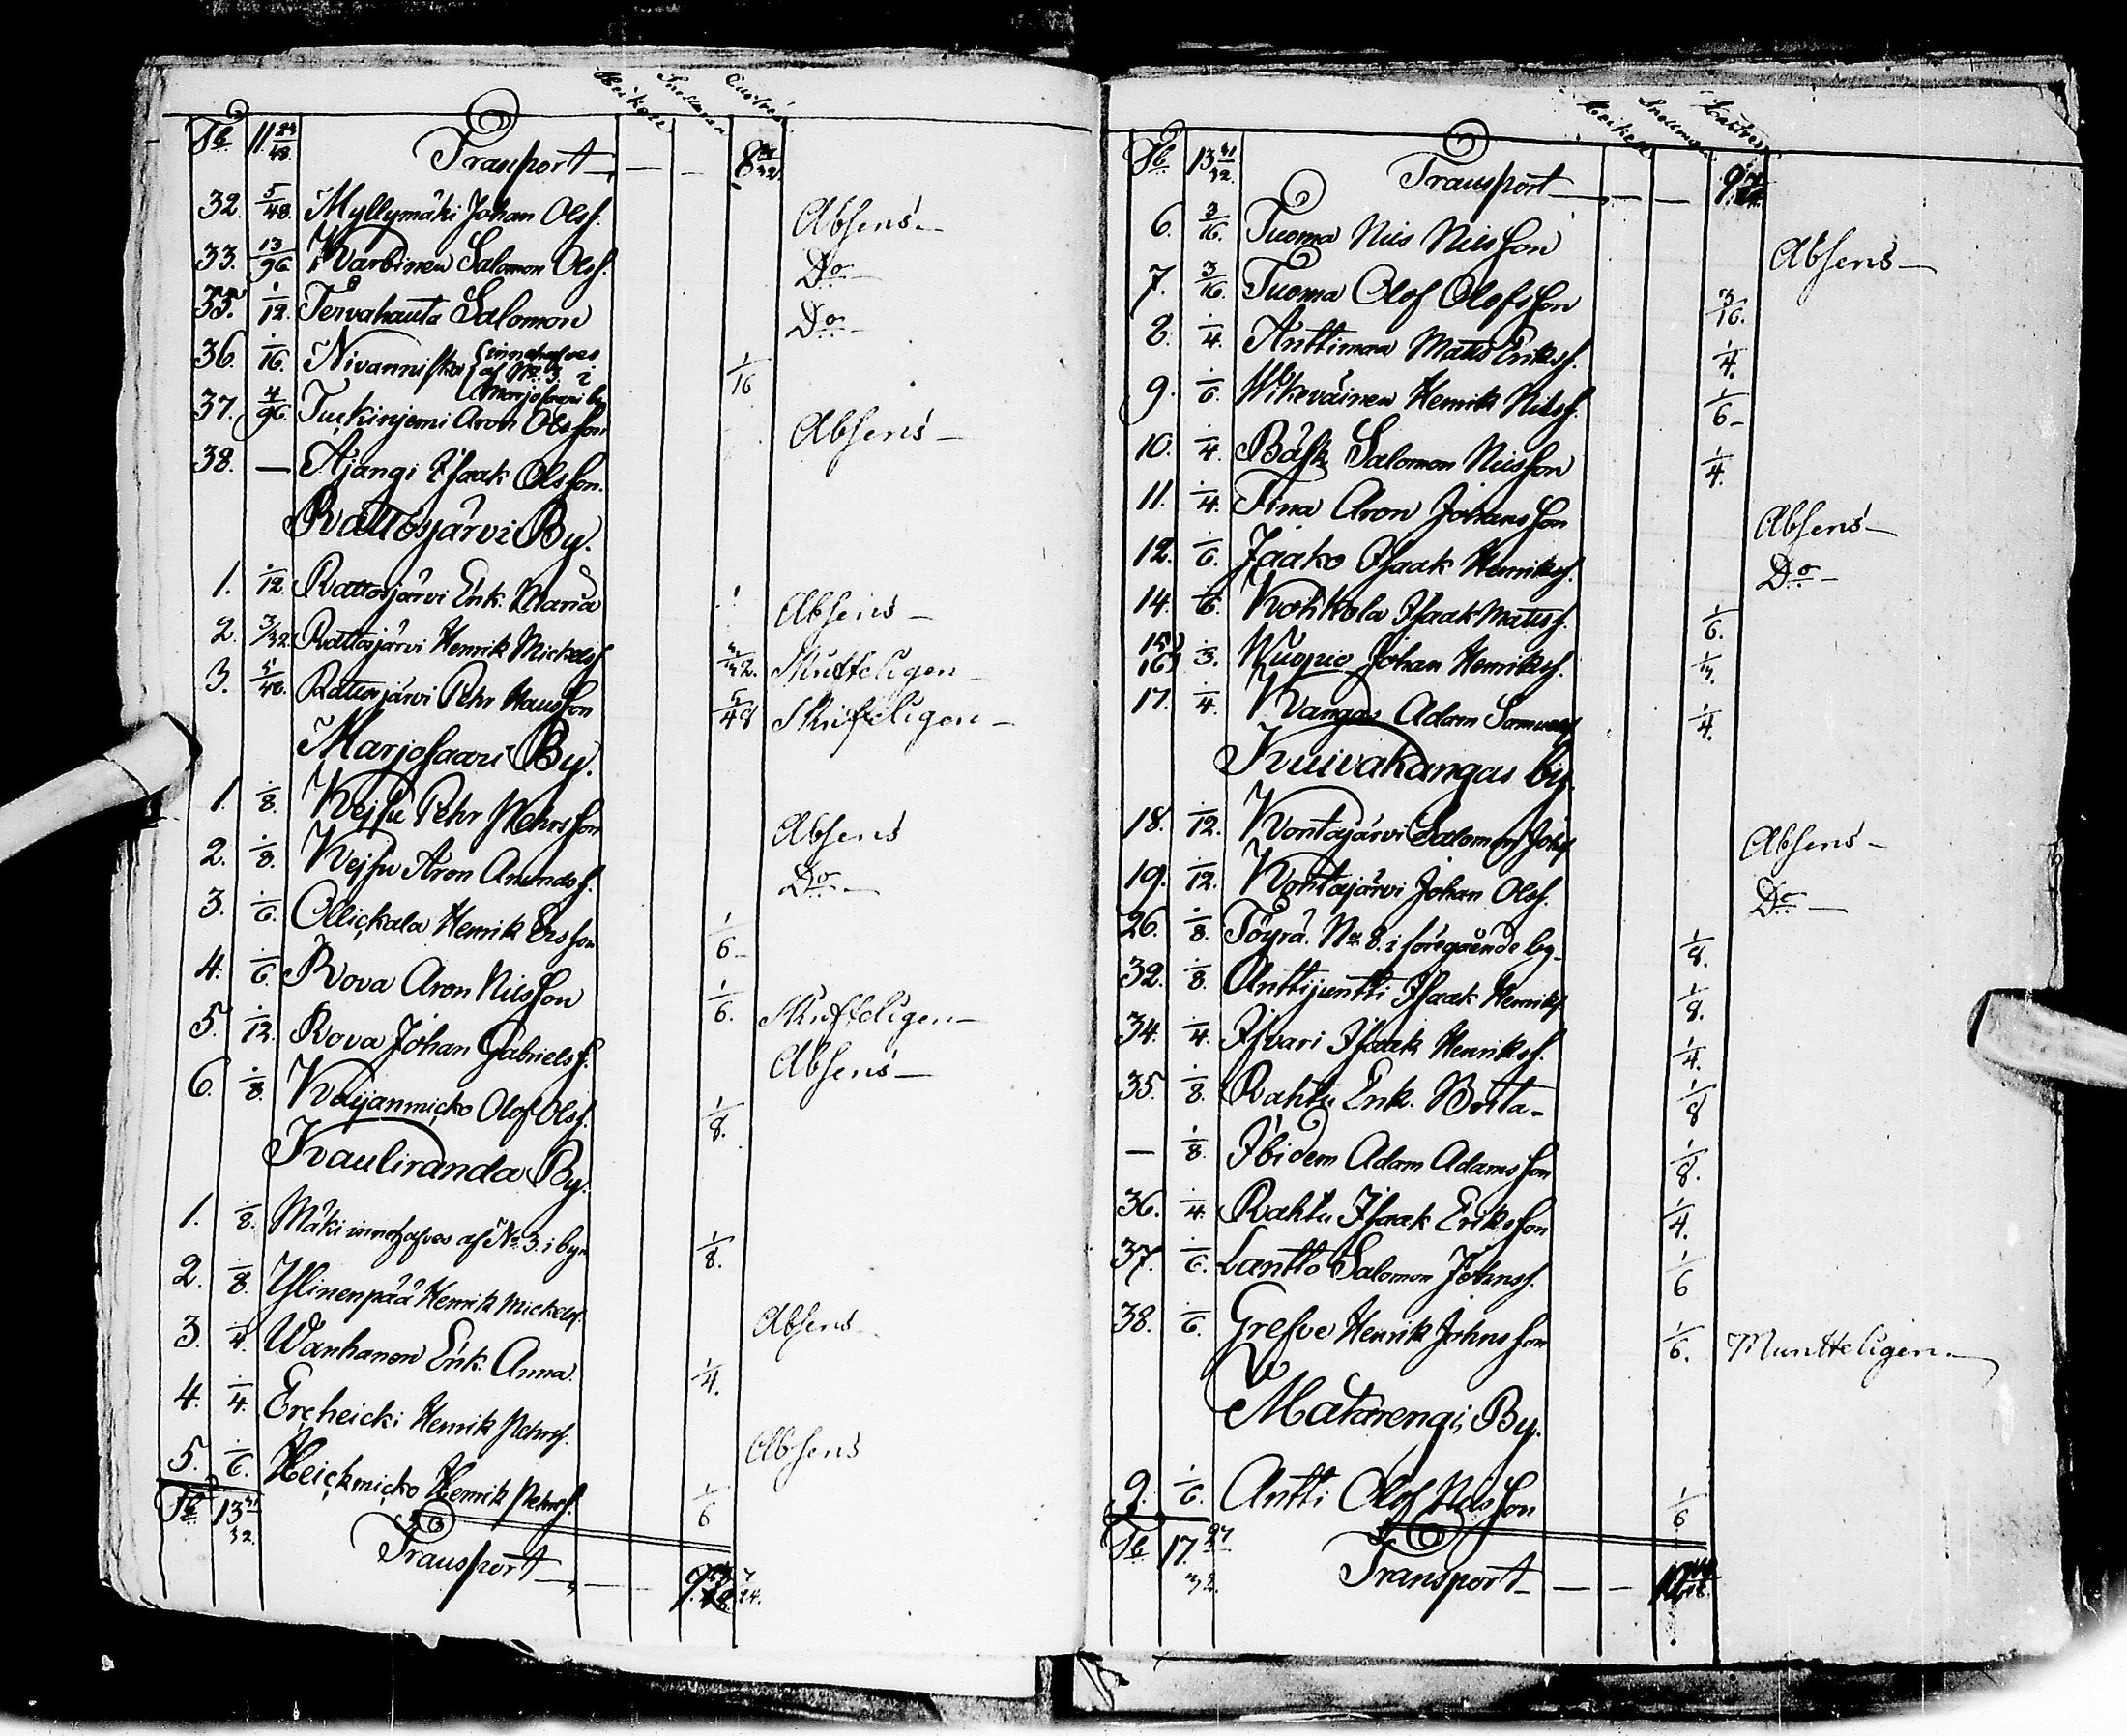 Heikell Snellman Castrén
S:a 11 24/48. Transport — — 8 21/32.
32. 5/48. Myllymäki Johan Olsf. Absens —
33. 13/96. Karbinen Salomon Olsf. Do —
35. 1/12. Tervahauta Salomon Do —
36. 1/16. Nivanniska innehafves af No. 3 i Marjosaari by 1/16
37. 4/96. Tuckinjemi Aron Olsson Absens —
38. — Äjangi Isaak Olsson.
Rattosjärvi By.
1. 1/12. Rattosjärvi Enk. Maria Absens —
2. 3/32. Rattosjärvi Henrik Mickelsf. 3/32. Skrifteligen —
3. 5/48. Rattosjärvi Pehr Hansson 5/48 Skrifteligen —
Marjosaari By.
1. 1/8. Kejsu Pehr Pehrsson Absens
2. 1/8. Kejsu Aron Arundsf. Do —
3. 1/6. Ollickala Henrik Ersson 1/6 —
4. 1/6. Rova Aron Nilsson 1/6. Skrifteligen —
5. 1/12. Rova Johan Gabrielsf. Absens —
6. 1/8. Keijanmicko Olof Olsf. 1/8.
Kauliranda By.
1. 1/8. Mäki innehafves af No. 3. i byn 1/8.
2. 1/8. Ylinenpää Henrik Mickelsf. Absens —
3. 1/4. Wanhanen Enk. Anna. 1/4.
4. 1/4. Ercheicki Henrik Pehrsf. Absens
5. 1/6. Heickmicko Henrik Pehrsf. 1/6
S:a 13 31/32. Transport — — 9. 7/24.
Heikell Snellman Castrén
S:a 13 31/32. Transport — — 9
6. 3/16. Tuoma Nils Nilsson Absens —
7. 3/16. Tuoma Olof Olofsson 3/16.
8. 1/4. Anttimaa Matts Eriksf. 1/4.
9. 1/6. Wikeväinen Henrik Nilsf. 1/6 —
10. 1/4. Bäsk Salomon Nilsson 1/4.
11. 1/4. Tina Aron Johansson Absens —
12. 1/6. Jaako Isaak Henriksf. Do —
14. 1/6. Kohkola Isaak Mattsf. 1/6.
15 16 1/3. Kuopio Johan Henriksf. 1/3.
17. 1/4. Kangas Adam Samuelsf 1/4.
Kuivakangas by.
18. 1/12. Kontajärvi Salomon Johsf Absens —
19. 1/12. Kontajärvi Johan Olsf. Do —
26. 1/8. Töyrä. No. 8. i föregående by — 1/8.
32. 1/8. Anttijuntti Isaak Henriksf 1/8.
34. 1/4. Isvari Isaak Henriksf. 1/4.
35. 1/8. Rahtu Enk. Brita — 1/8
— 1/8. Ibidem Adam Adamsson 1/8.
36. 1/4. Rahtu Isaak Eriksson 1/4.
37. 1/6. Lantto Salomon Johnsf. 1/6
38. 1/6. Grefve Henrik Johnsson 1/6. Muntteligen. —
Matarengi By.
9. 1/6. Antti Olof Nilsson 1/6
S:a 17. 27/32. Transport — — —